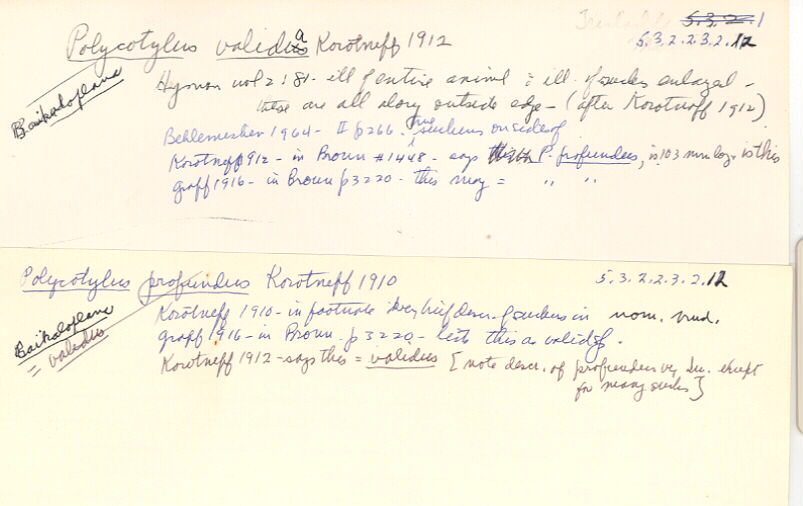 5.3.2.1
5.3.2.2.3.2.12
Polycotylus valida Korotneff 1912
Baikaloplana
Hyman vol 2:81. ill of entire animal + ill. of suckers enlarged -
these are all along outside edge - (after Korotneff 1912)
Beklemeshev 1964 - II p266. true suckers on sides of
Korotneff 1912 - in Bronn #1448 - says this P. profundus, is 103 mm long is this
Graff 1916 - in Bronn p3220 - this may = " "
Polycotylus profundus Korotneff 1910
5.3.2.2.3.2.12
Baikaloplana
= validus
Korotneff 1910 - in footnote very brief descr. of suckers in nom. nud.
Graff 1916 - in Bronn p3220 - lists this as valid sp.
Korotneff 1912 - says this = validus [note descr. of profundus except
for many suckers]